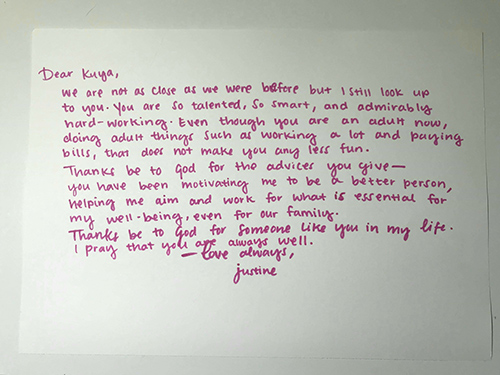 Dear Kuya,
we are not as close as we were before but I still look up
to you. You are so talented, so smart, and admirably
hard-working. Even though you are an adult now,
doing adult things such as working a lot and paying
bills, that does not make you any less fun.
Thanks be to God for the advices you give—
you have been motivating me to be a better person,
helping me aim and work for what is essential for
my well-being, even for our family.
Thanks be to God for someone like you in my life.
I pray that you are always well.
— love always,
justine